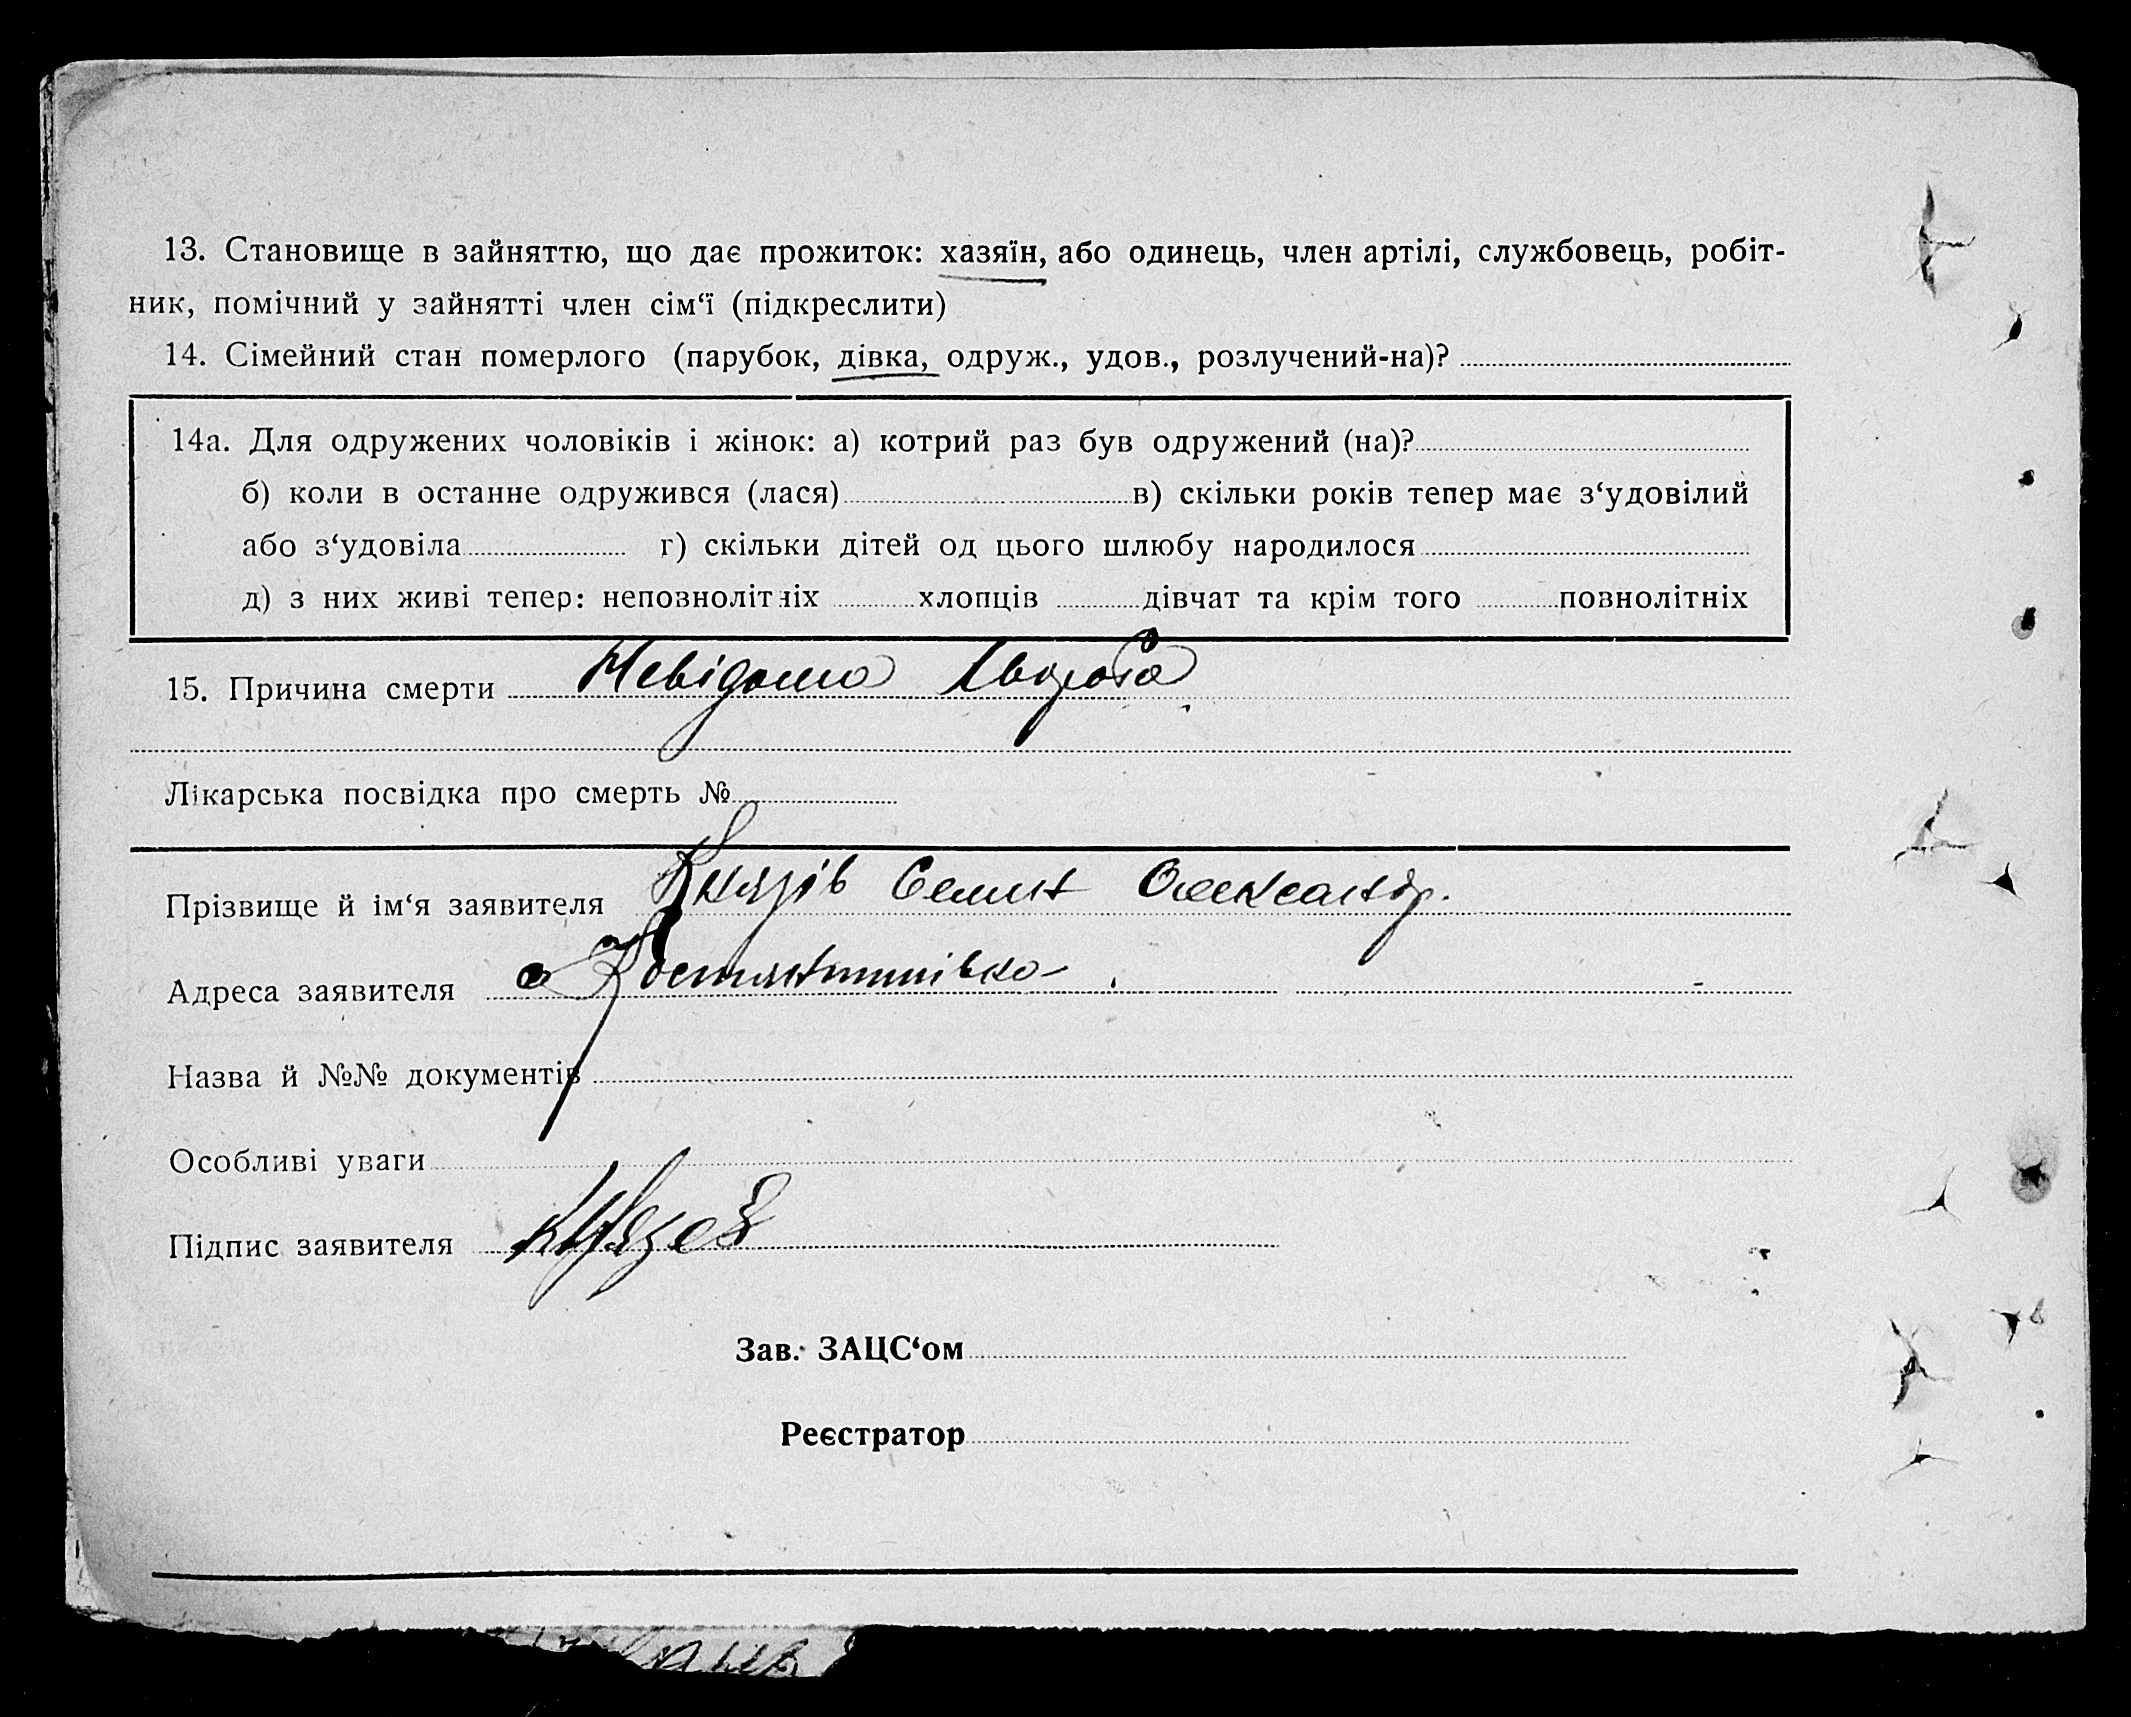 13. Становище в зайняттю, що дає прожиток: хазяїн, або одинець, член артілі, службовець, робіт-
ник, помічний у зайнятті член сім‘ї (підкреслити)
14. Сімейний стан померлого (парубок, дівка, одруж., удов., розлучений-на)?
14а. Для одружених чоловіків і жінок: а) котрий раз був одружений (на)?
б) коли в останне одружився (лася) в) скільки років тепер має з‘удовілий
або з‘удовіла г) скільки дітей од цього шлюбу народилося
д) з них живі тепер: неповнолітніх хлопців дівчат та крім того повнолітніх
15. Причина смерти Невідома Хвороба
Лікарська посвідка про смерть №
Прізвище й ім‘я заявителя Князів Семен Олександр.
Адреса заявителя с Костянтинівка
Назва й №№ документів
Особливі уваги
Підпис заявителя Князев
Зав. ЗАЦС‘ом
Реєстратор